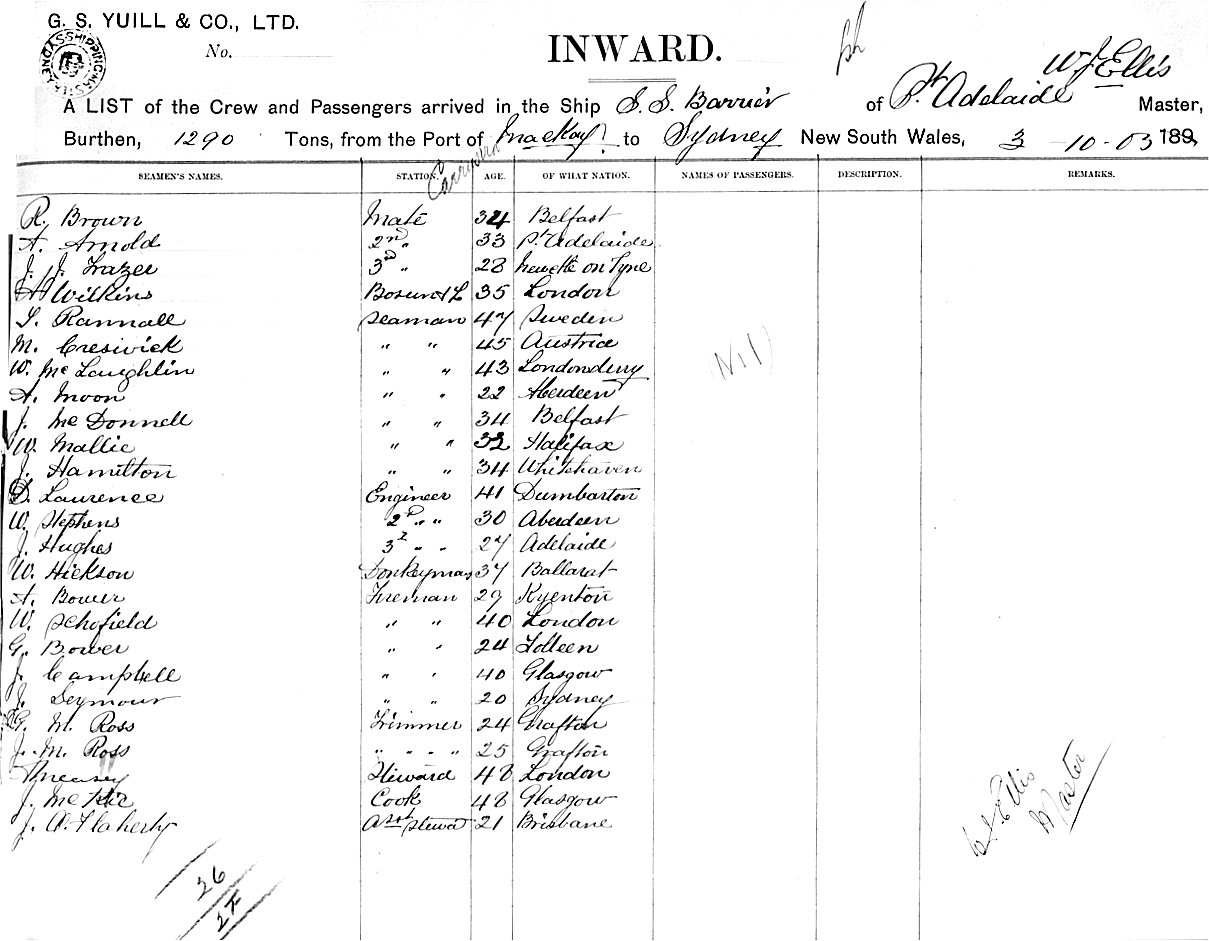 G. S. YUILL & CO., LTD.
No.
INWARD.
W J Ellis
A LIST of the Crew and Passengers arrived in the Ship S. S. Barrier of Pt Adelaide Master,
Burthen, 1290 Tons, from the Port of Mackay to Sydney New South Wales, 3 - 10 - 03 189
SEAMEN'S NAMES. STATION. AGE. OF WHAT NATION. NAMES OF PASSENGERS. DESCRIPTION. REMARKS.
R. Brown Mate 34 Belfast
A. Arnold 2nd " 33 Pt Adelaide
J. J. Frazer 3d " 28 Newctle on Tyne
H Wilkins Bosun & L 35 London
S. Rannall Seaman 47 Sweden
M. Cresiwick " " 45 Austria
W. McLaughlin " " 43 Londonderry
A. Moon " " 22 Aberdeen
J. McDonnell " " 34 Belfast
W. Mallie " " 32 Halifax
J. Hamilton " " 34 Whitehaven
D. Laurence Engineer 41 Dumbarton
W. Stephens 2d " " 30 Aberdeen
J. Hughes 3d " " 27 Adelaide
W. Hickson Donkeyman 37 Ballarat
A. Bower Fireman 29 Kyenton
W. Schofield " " 40 London
G. Bower " " 24 Tolleen
J. Campbell " " 40 Glasgow
J. Seymour " " 20 Sydney
G. M. Ross Trimmer 24 Grafton
J. M. Ross " " " " 25 Grafton
Measey Steward 48 London
J. Cook 48 Glasgow
J. O.Flaherty Asst Stewd 21 Brisbane
Nil
Ellis
Master
26